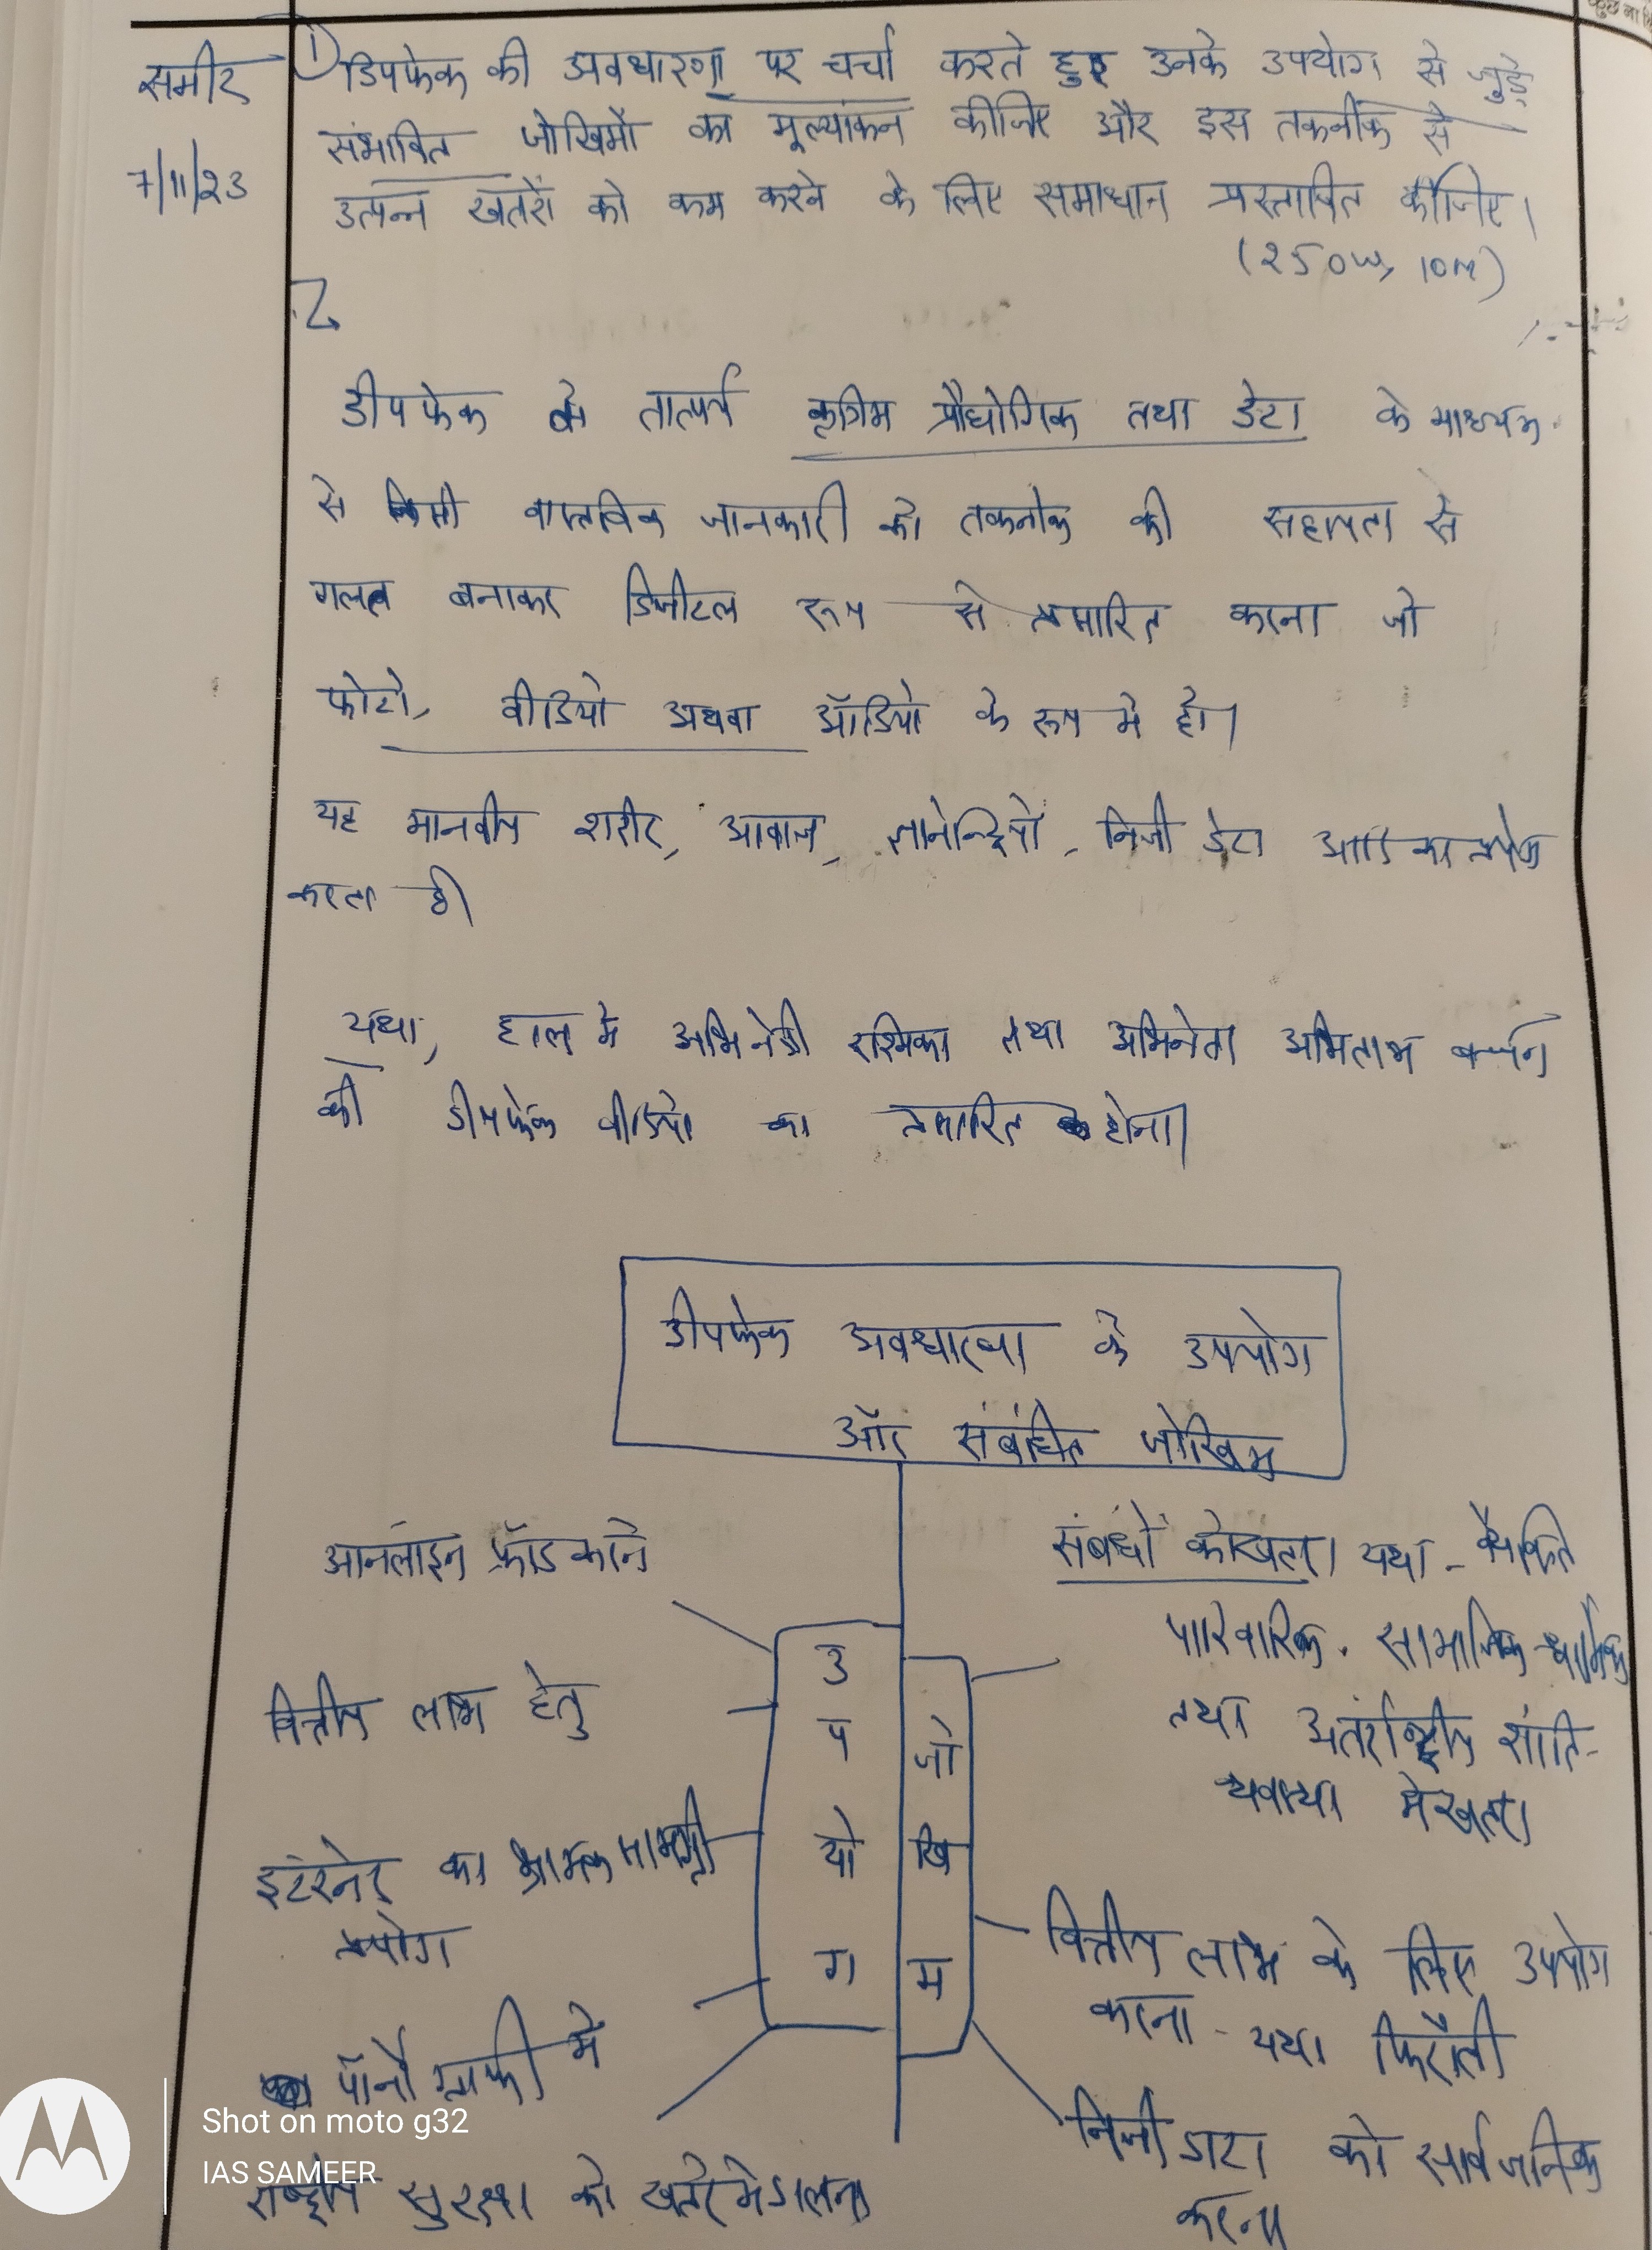 समीर
7/11/23
① डिपफेक की अवधारणा पर चर्चा करते हुए उनके उपयोग से जुड़े
संभावित जोखिमों का मूल्यांकन कीजिए और इस तकनीक से
उत्पन्न खतरों को कम करने के लिए समाधान प्रस्तावित कीजिए।
(250w, 10M)
डीपफेक से तात्पर्य कृत्रिम प्रौद्योगिक तथा डेटा के माध्यम
से किसी वास्तविक जानकारी को तकनीक की सहायता से
गलत बनाकर डिजीटल रूप से प्रसारित करना जो
फोटो, वीडियो अथवा ऑडियो के रूप में हो।
यह मानवीय शरीर, आवाज, ज्ञानेन्द्रियों, निजी डेटा आदि का प्रयोग
करता है।
यथा, हाल में अभिनेत्री रश्मिका तथा अभिनेता अमिताभ बच्चन
की डीपफेक वीडियो का प्रसारित होना।
डीपफेक अवधारणा के उपयोग
और संबंधित जोखिम
उपयोग
आनलाइन फ्रॉड करने
वित्तीय लाभ हेतु
इंटरनेट का भ्रामक सामग्री
प्रयोग
पॉर्नोग्राफी में
राष्ट्रीय सुरक्षा को खतरे में डालना
जोखिम
संबंधों को खतरा यथा - वैयक्ति
पारिवारिक, सामाजिक-धार्मिक
तथा अंतर्राष्ट्रीय शांति-
व्यवस्था में खतरा
वित्तीय लाभ के लिए उपयोग
करना - यथा फिरौती
निजी डाटा को सार्वजनिक
करना
Shot on moto g32
IAS SAMEER